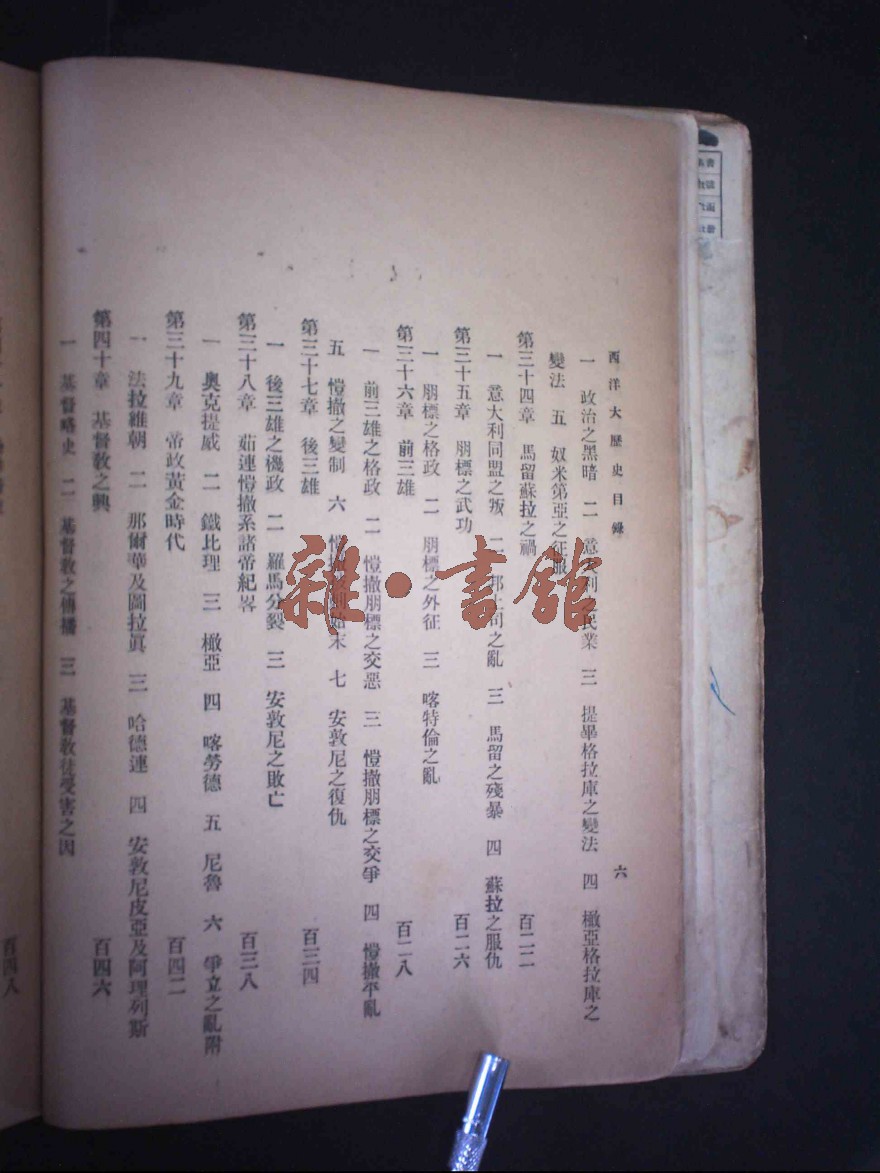 西洋大歷史目錄 六
一 政治之黑暗 二 意大利之民業 三 提畢格拉庫之變法 四 橄亞格拉庫之
變法 五 奴米第亞之征服
第三十四章 馬留蘇拉之禍 百二二
一 意大利同盟之叛 二 邦土司之亂 三 馬留之殘暴 四 蘇拉之服仇
第三十五章 朋標之武功 百二六
一 朋標之格政 二 朋標之外征 三 喀特倫之亂
第三十六章 前三雄 百二八
一 前三雄之格政 二 愷撤朋標之交惡 三 愷撤朋標之交爭 四 愷撤平亂
五 愷撤之變制 六 愷撤 始末 七 安敦尼之復仇
第三十七章 後三雄 百三四
一 後三雄之機政 二 羅馬分裂 三 安敦尼之敗亡
第三十八章 茹連愷撤系諸帝紀畧 百三八
一 奧克提威 二 鐵比理 三 橄亞 四 喀勞德 五 尼魯 六 爭立之亂附
第三十九章 帝政黃金時代 百四二
一 法拉維朝 二 那爾華及圖拉眞 三 哈德連 四 安敦尼皮亞及阿理列斯
第四十章 基督敎之興 百四六
一 基督略史 二 基督敎之傳播 三 基督敎徒受害之因
百四八
雜·書館